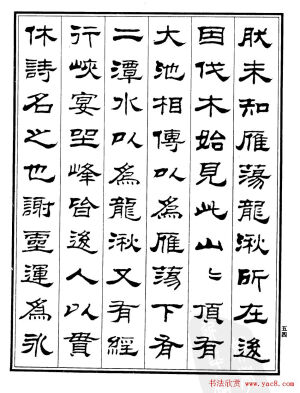 肰未知雁蕩龍湫所在後
因伐木始見此山〻頂有
大池相傳以為雁蕩下有
二潭水以為龍湫又有經
行峽宴坐峰皆後人以貫
休詩名之也謝靈運為永
五四
书法欣赏 yac8.com